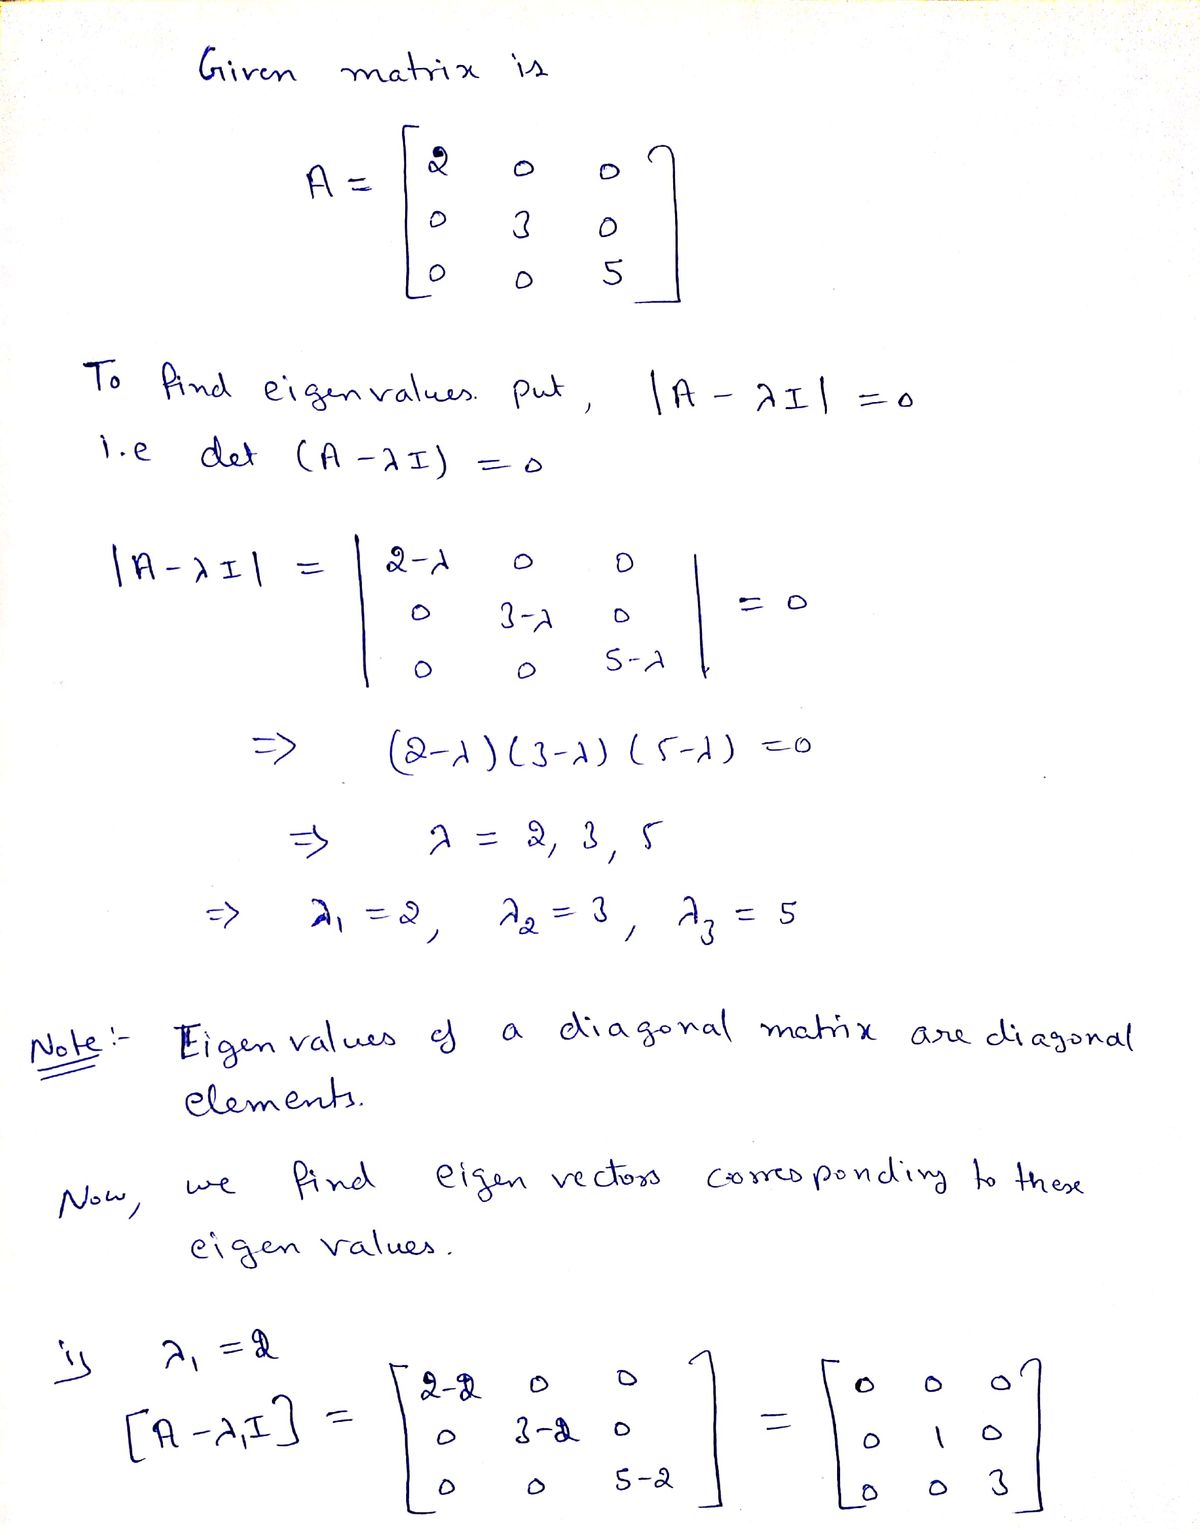 Given matrix is
A = [ 2 0 0
0 3 0
0 0 5 ]
To find eigenvalues. put, |A - λI| = 0
i.e det (A - λI) = 0
|A - λI| = | 2-λ 0 0
0 3-λ 0
0 0 5-λ | = 0
=> (2-λ)(3-λ)(5-λ) = 0
=> λ = 2, 3, 5
=> λ₁ = 2, λ₂ = 3, λ₃ = 5
Note :- Eigen values of a diagonal matrix are diagonal
elements.
Now, we find eigen vectors corresponding to these
eigen values.
i) λ₁ = 2
[A - λ₁I] = [ 2-2 0 0
0 3-2 0
0 0 5-2 ] = [ 0 0 0
0 1 0
0 0 3 ]